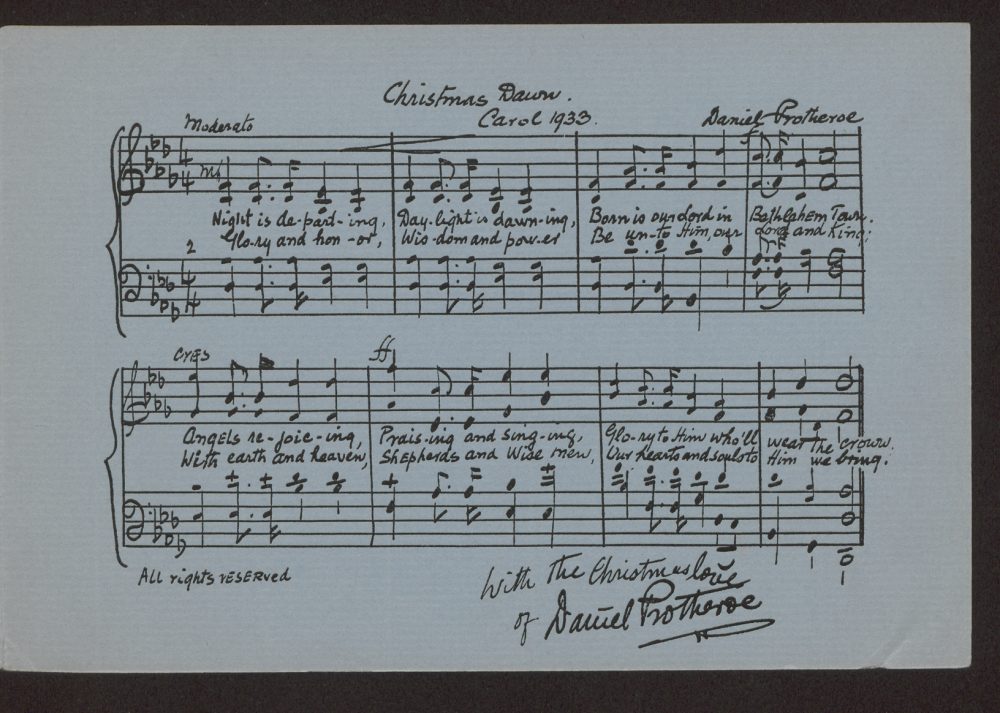 Christmas Dawn.
Carol 1933.
Moderato
Daniel Protheroe
mf
f
Night is de-part-ing, Day-light is dawn-ing, Born is our Lord in Bethlehem Town.
2 Glo-ry and hon-or, Wis-dom and pow-er Be un-to Him, our Lord and King;
cres
ff
Angels re-joic-ing, Prais-ing and sing-ing, Glo-ry to Him who'll wear the crown.
With earth and heaven, Shepherds and Wise men, Our hearts and souls to Him we bring.
All rights reserved
With the Christmas love
of Daniel Protheroe